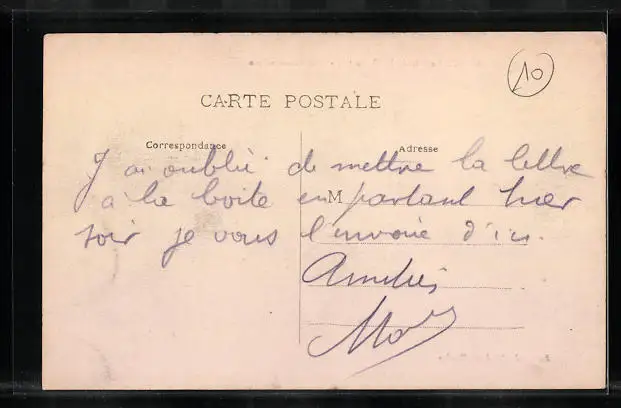 10
CARTE POSTALE
Correspondance
Adresse
J'ai oublié de mettre la lettre
à la boite en M partant hier
soir je vous l'envoie d'ici.
Amitiés